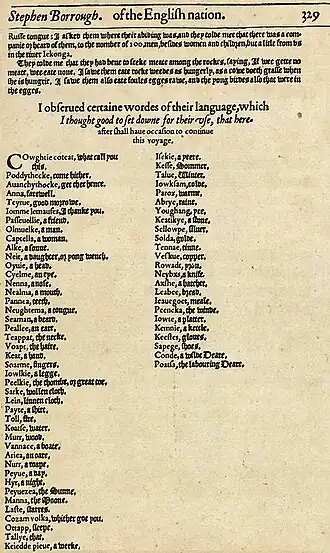 Stephen Borrough. of the English nation. 329
Russe tongue: I asked them where their abiding was, and they tolde me that there was a companie
of heard of them, to the number of 100. men, besides women and children, but a litle from vs in
the riuer Iekonga.
They tolde me that they had bene to seeke meate among the rockes, saying, If wee gette no
meate, wee eate none. I sawe them eate rocke weedes as hungerly, as a cowe doeth grasse when
shee is hungrie. I sawe them also eate foules egges rawe, and the yong birdes also that were in
the egges.
I obserued certaine wordes of their language, which
I thought good to set downe for their vse, that here-
after shall haue occasion to continue
this voyage.
COwghtie coteat, what call you
this.
Poddythecke, come hither.
Auanchythocke, get thee hence.
Anna, farewell.
Teyrue, good morowe.
Iomme lemaufes, I thanke you.
Passeuellie, a friend.
Olmuelke, a man.
Captella, a woman.
Alke, a sonne.
Neit, a daughter, or yong wench.
Oyuie, a head.
Cyelme, an eye.
Nenna, a nose.
Nealma, a mouth.
Pannea, teeth.
Neughtema, a tongue.
Seaman, a beard.
Peallee, an eare.
Teappat, the necke.
Voapt, the haire.
Keat, a hand.
Soarme, fingers.
Iowlkie, a legge.
Peelkie, the thombe, or great toe.
Sarke, wollen cloth.
Lein, linnen cloth.
Payte, a shirt.
Toll, fire.
Keatse, water.
Murr, wood.
Vannace, a boate.
Arica, an oare.
Nurr, a roape.
Peyue, a day.
Hyr, a night.
Peyuezea, the Sunne.
Manna, the Moone.
Laste, starres.
Cozam volka, whither goe you.
Ottapp, sleepe.
Tallye, that,
Keiedde pieue, a weeke.
Isckie, a yeere.
Kesse, Sommer.
Talue, Winter.
Iowksam, colde.
Paroz, warme.
Abrye, raine.
Youghang, yce.
Keatikye, a stone.
Sellowpe, siluer.
Solda, golde.
Tennae, tinne.
Veskue, copper.
Rowadt, yron.
Neybx, a knife.
Axshe, a hatchet.
Leabee, bread.
Ieauegoet, meale.
Pencka, the winde.
Iowte, a platter.
Kemnie, a kettle.
Keestes, gloues.
Sapege, shoes.
Conde, a wilde Deare.
Poatsa, the labouring Deare.